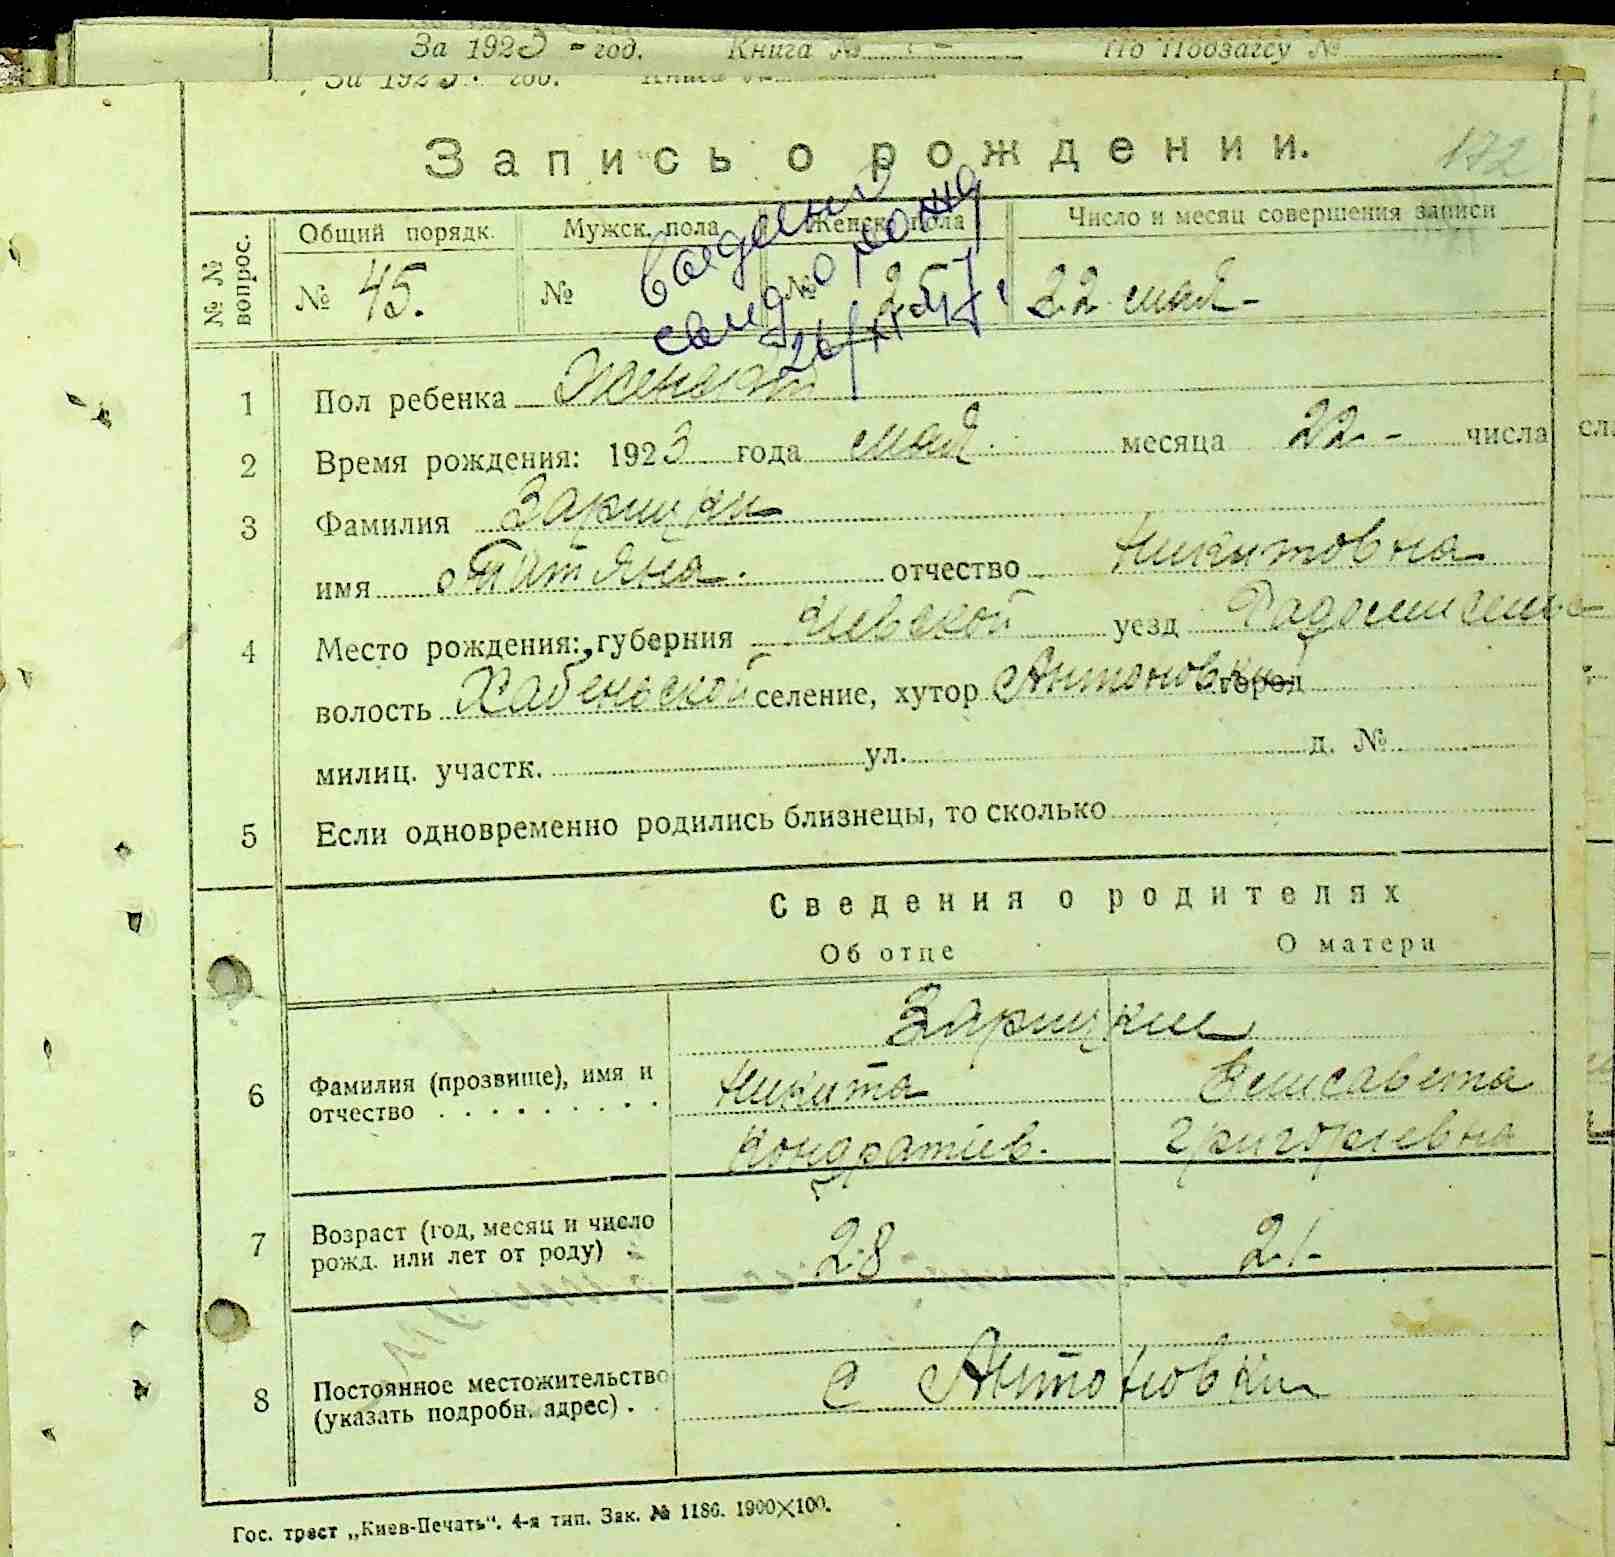 За 1923 - год. Книга № - По Подзагсу №
За 1923. год. Книга №
Запись о рождении. 172
№ № вопрос. Общий порядк. Мужск. пола Женск. пола Число и месяц совершения записи
№ 45. № № 25 22 мая -
1 Пол ребенка Женский
2 Время рождения: 1923 года мая месяца 22 - числа
3 Фамилия Зарицки
имя Татьяна. отчество Никитовна
4 Место рождения: губерния Киевской уезд
волость Хабенской селение, хутор Антоновки город
милиц. участк. ул. д. №
5 Если одновременно родились близнецы, то сколько
Сведения о родителях
Об отце О матери
Зарицкие
6 Фамилия (прозвище), имя и Никита Елисавета
отчество Кондратіев. Григориевна
7 Возраст (год, месяц и число
рожд. или лет от роду) 28 - 21 -
8 Постоянное местожительство с Антоновки
(указать подробн. адрес).
Гос. трест „Киев-Печать“. 4-я тип. Зак. № 1186. 1900×100.